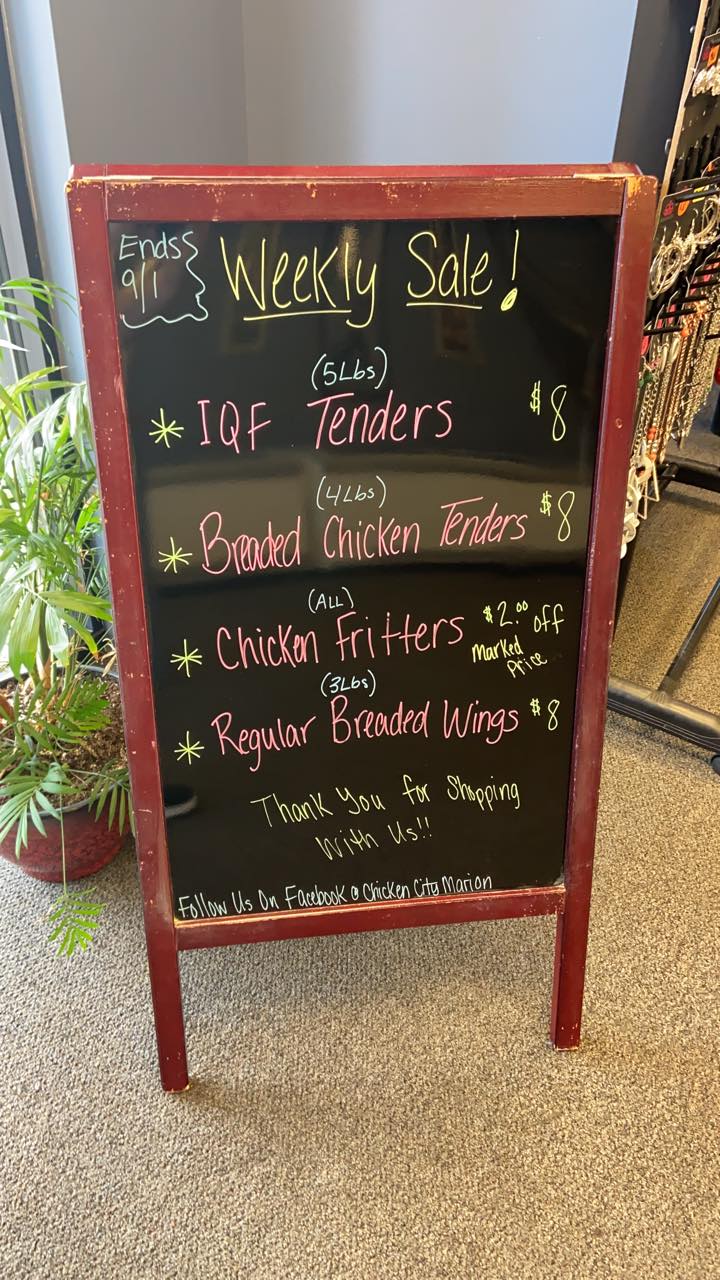 Ends
9/1
Weekly Sale!
(5Lbs)
* IQF Tenders $8
(4Lbs)
* Breaded Chicken Tenders $8
(ALL)
* Chicken Fritters $2.00 off
marked
price
(3Lbs)
* Regular Breaded Wings $8
Thank You for Shopping
With Us!!
Follow Us On Facebook @ Chicken City Marion